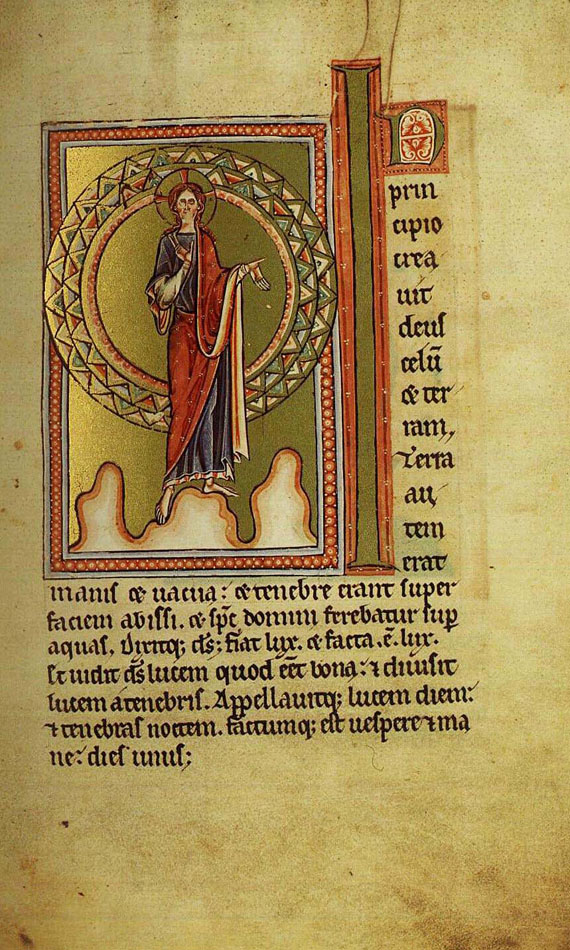 IN
prin
cipio
crea
uit
deus
celū
& ter
ram,
Terra
au
tem
erat
inanis & uacua: & tenebre erant super
faciem abissi. & sp̄c domini ferebatur sup
aquas. Dixitq; d̄s; fiat lux. & facta .ē. lux.
Et uidit d̄s lucem quod eēt bona: & diuisit
lucem a tenebris. Appellauitq; lucem diem:
& tenebras noctem. factumq; est uespere & ma
ne: dies unus;